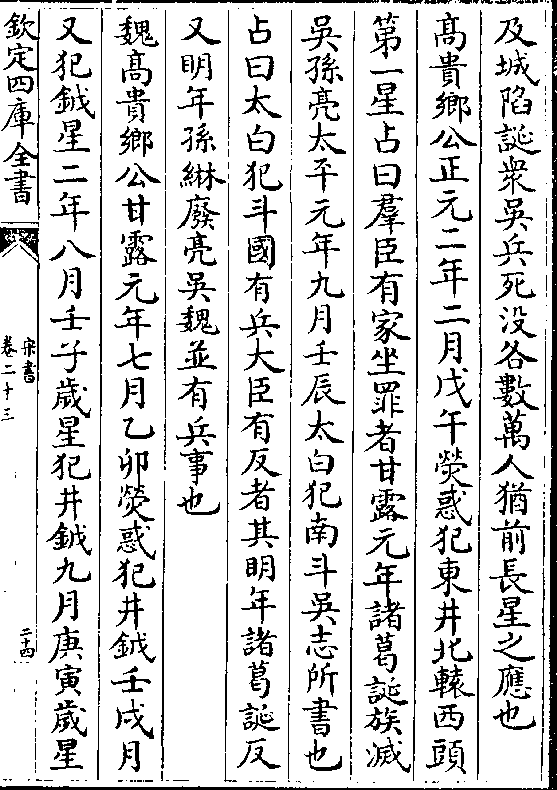 及城陷誕衆吳兵死没各數萬人猶前長星之應也
髙貴鄉公正元二年二月戊午熒惑犯東井北轅西頭
第一星占曰羣臣有家坐罪者甘露元年諸葛誕族滅
吳孫亮太平元年九月壬辰太白犯南斗吳志所書也
占曰太白犯斗國有兵大臣有反者其明年諸葛誕反
又明年孫綝廢亮吳魏並有兵事也
魏髙貴鄉公甘露元年七月乙卯熒惑犯井鉞壬戌月
又犯鉞星二年八月壬子歲星犯井鉞九月庚寅歲星
欽定四庫全書
宋書
卷二十三
二十四